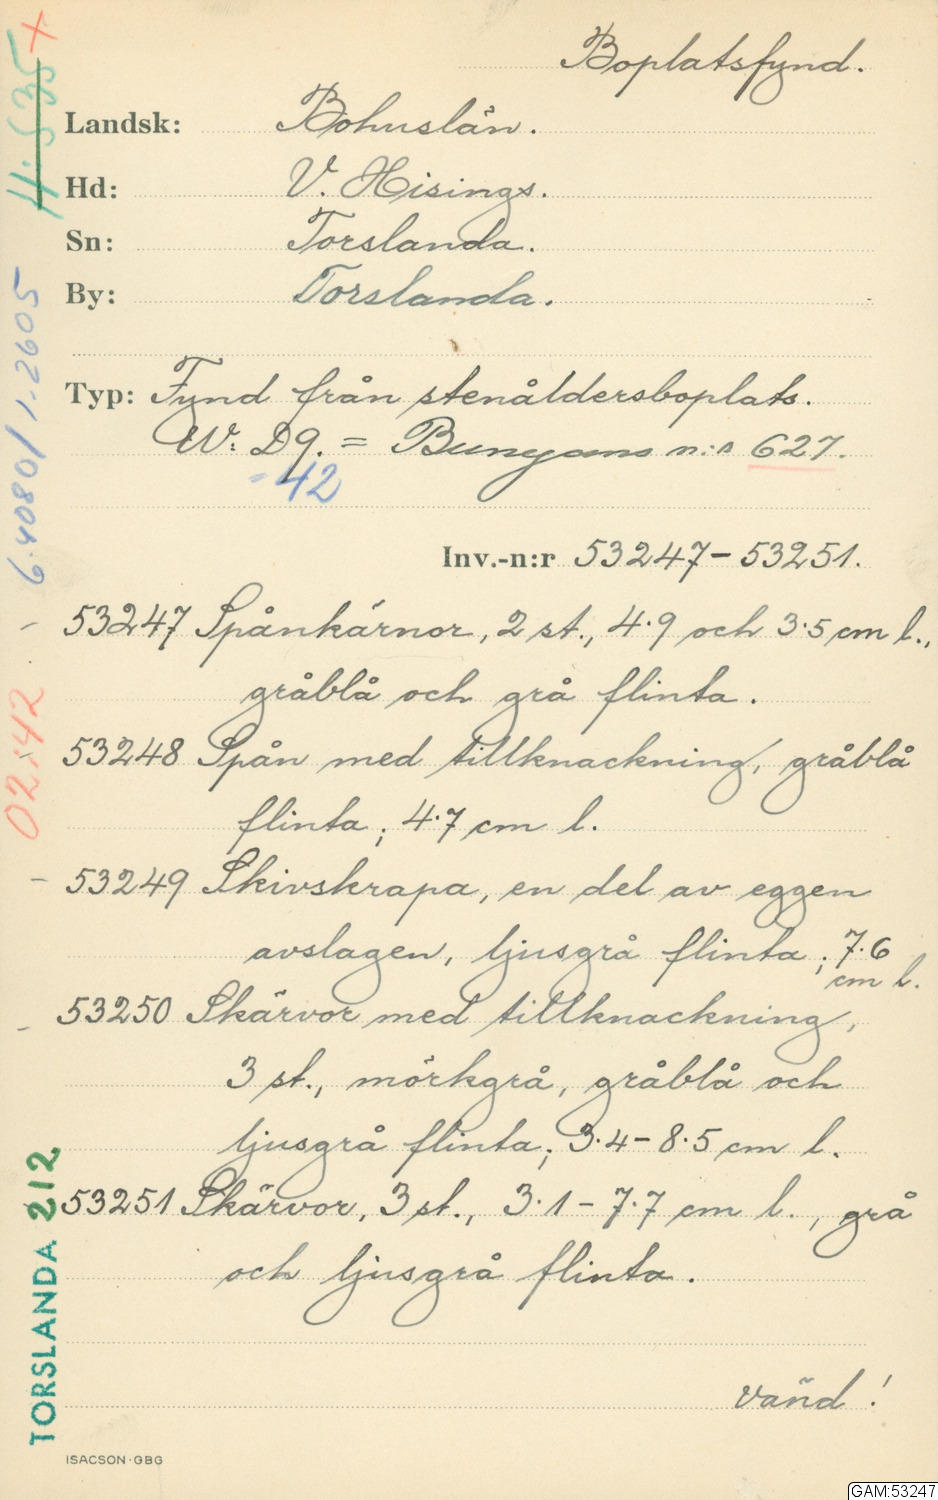 Boplatsfynd.
Landsk: Bohuslän.
Hd: V. Hisings.
Sn: Torslanda.
By: Torslanda.
Typ: Fynd från stenåldersboplats.
W: D9. = Bungans n:o 627.
= 42
Inv.-n:r 53247-53251.
53247 Spånkärnor, 2 st., 4.9 och 3.5 cm l.,
gråblå och grå flinta.
53248 Spån med tillknackning, gråblå
flinta; 4.7 cm l.
53249 Skivskrapa, en del av eggen
avslagen, ljusgrå flinta; 7.6
cm l.
53250 Skärvor med tillknackning,
3 st., mörkgrå, gråblå och
ljusgrå flinta; 3.4-8.5 cm l.
53251 Skärvor, 3 st., 3.1-7.7 cm l., grå
och ljusgrå flinta.
vänd!
ISACSON·GBG
GAM:53247
TORSLANDA 212
02:42
6.4080/1.2605